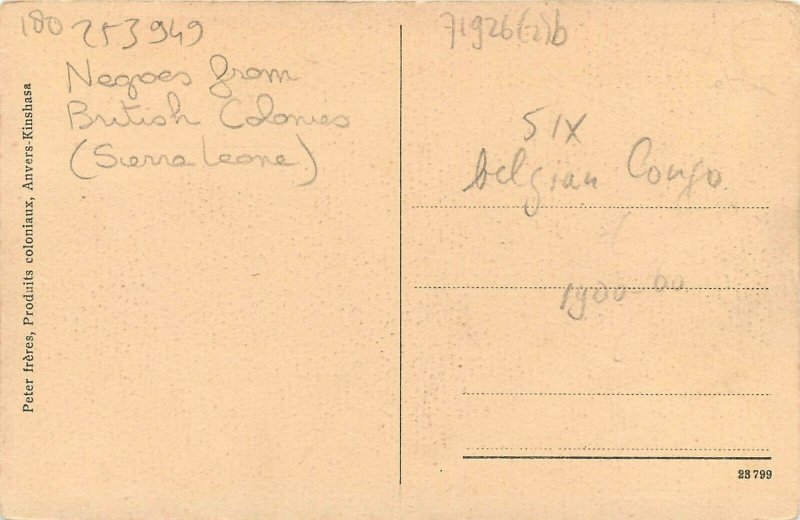 180 253949
Negoes from
British Colonies
(Sierra Leone)
71926(2)b
51X
belgian Congo
1900-60
Peter frères, Produits coloniaux, Anvers-Kinshasa
23799